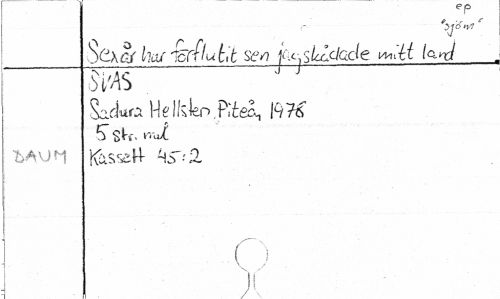 ep
"sjöm"
Sex år har förflutit sen jag skådade mitt land
SVAS
Sadura Hellsten, Piteå, 1978
5 str. mel
DAUM Kassett 45:2